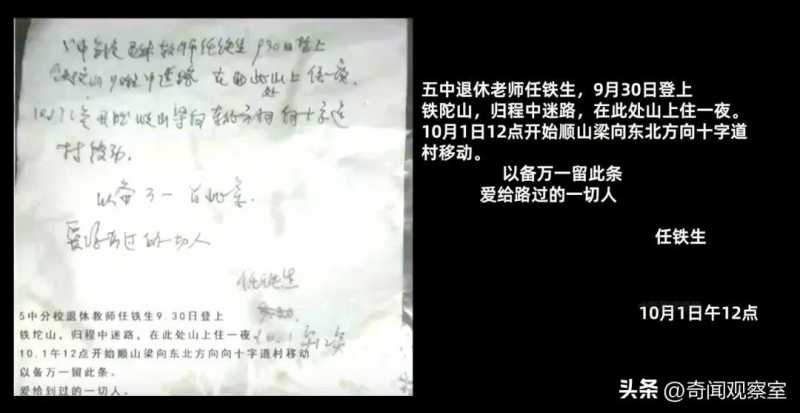 5中分校退休教师任铁生 9.30日登上
山归程中迷路 在此处山上住一夜
山梁向东北方向向十字道
村移动.
以备万一留此条.
爱给 过的一切人
任铁生
10.1
5中分校退休教师任铁生9.30日登上
铁坨山、归程中迷路、在此处山上住一夜
10.1午12点开始顺山梁向东北方向向十字道村移动
以备万一留此条。
爱给到过的一切人。
五中退休老师任铁生，9月30日登上
铁陀山，归程中迷路，在此处山上住一夜。
10月1日12点开始顺山梁向东北方向十字道
村移动。
以备万一留此条
爱给路过的一切人
任铁生
10月1日午12点
头条 @奇闻观察室